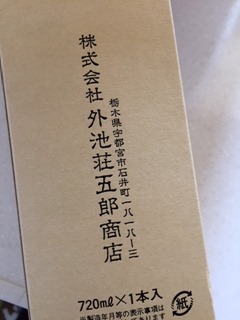 栃木県宇都宮市石井町一八一八ー三
株式会社 外池荘五郎商店
720mℓ×1本入
製造年月等の表示事項は
紙